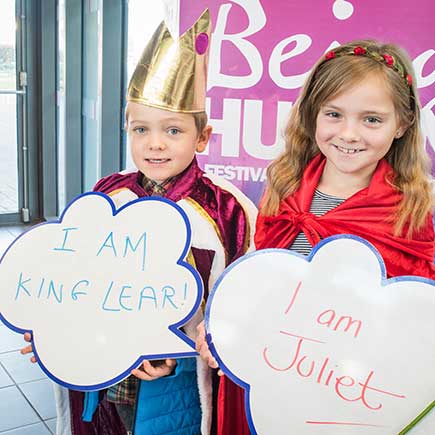 Being
HUMAN
FESTIVAL
I AM
KING LEAR!
I am
Juliet